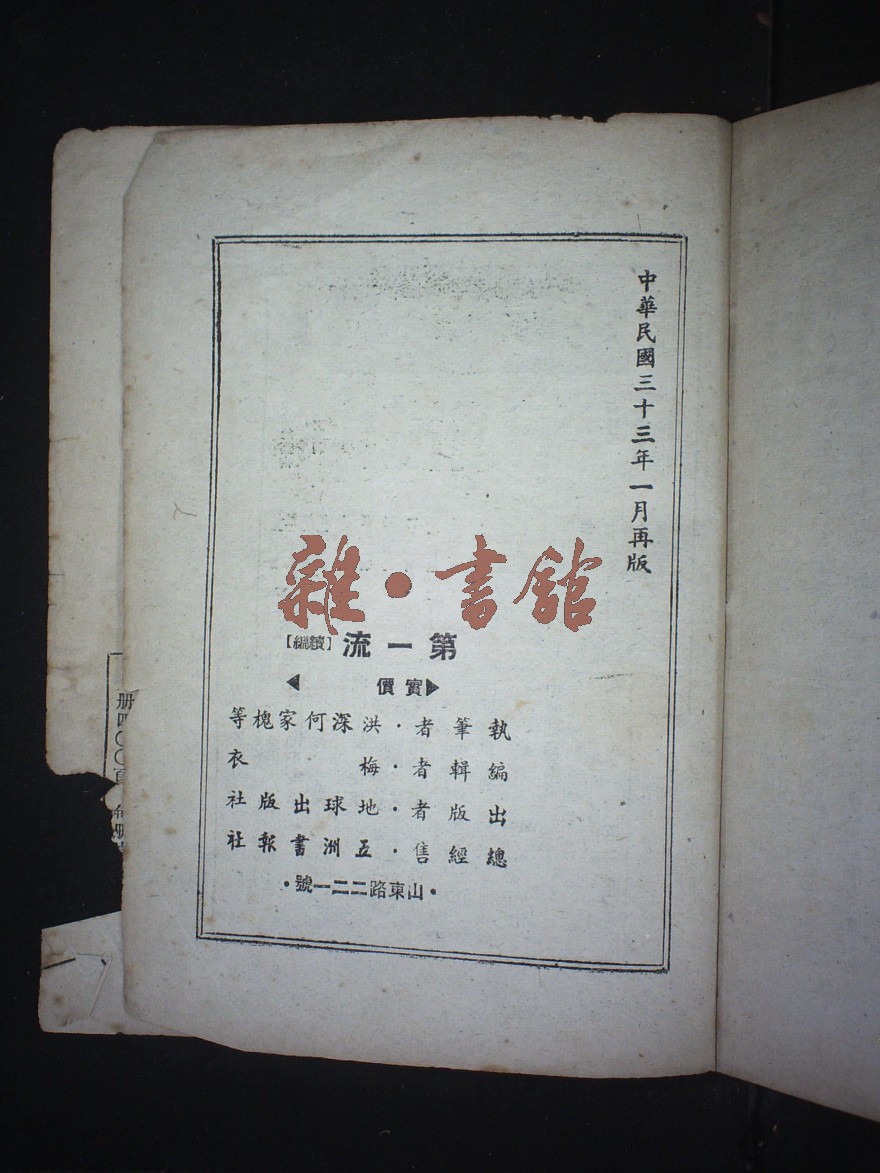 中華民國三十三年一月再版
雜·書館
第一流【續編】
▶實價◀
執筆者·洪深何家槐等
編輯者·梅衣
出版者·地球出版社
總經售·五洲書報社
·山東路二二一號·
册四〇〇頁